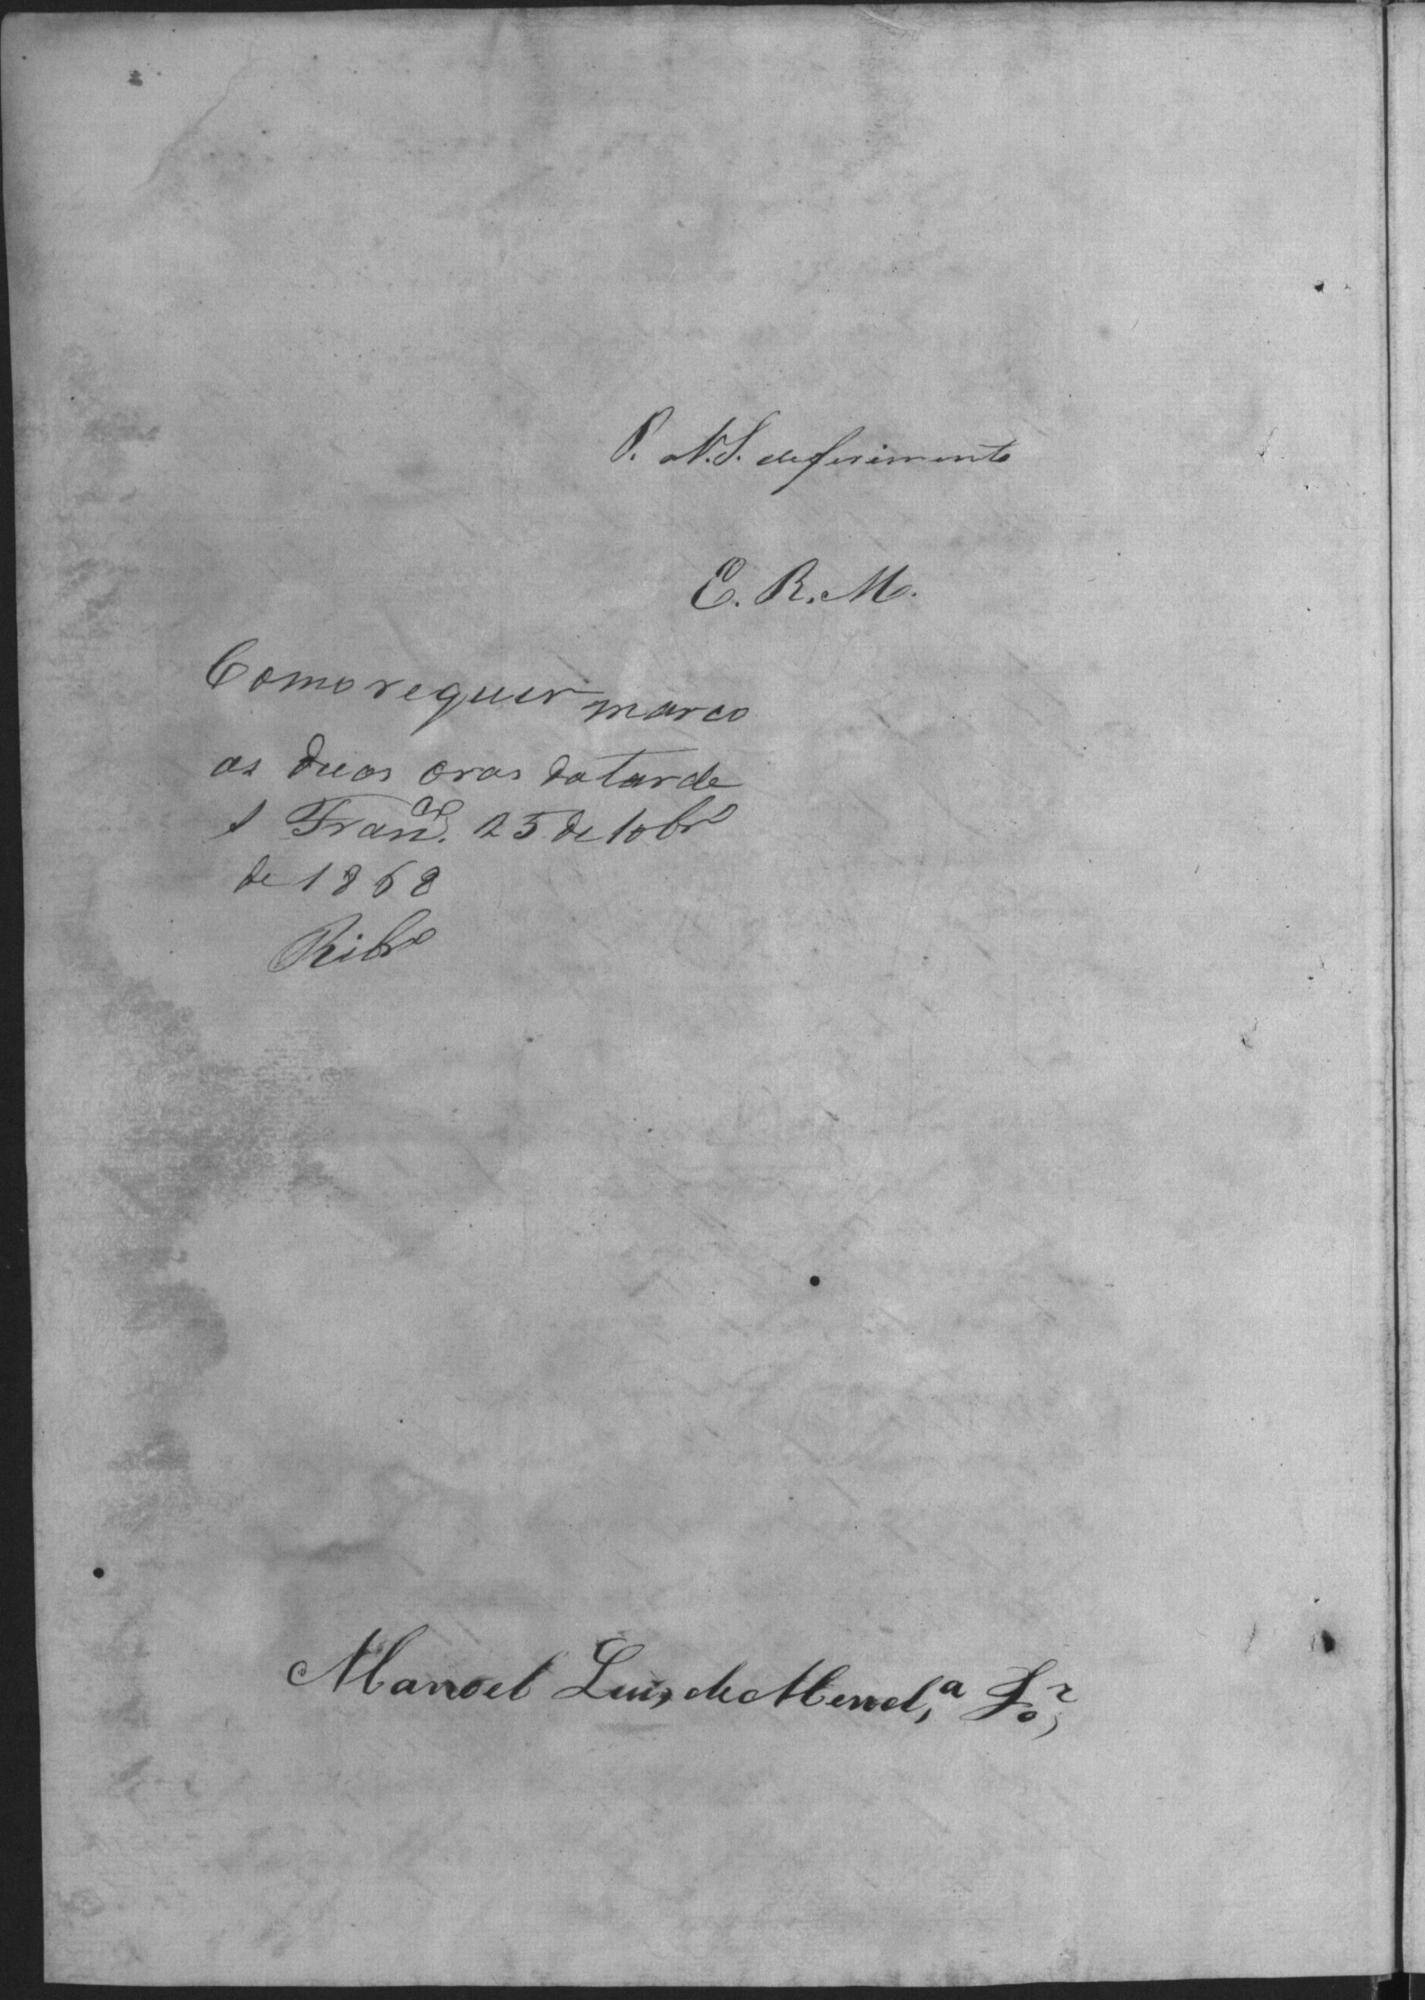 P. a V.S. deferimento
E. R. M.
Como requer marco
as duas oras da tarde
S Fran.co 25 de 10br.o
de 1868
Ribr.o
Manoel Luis de Mend,a